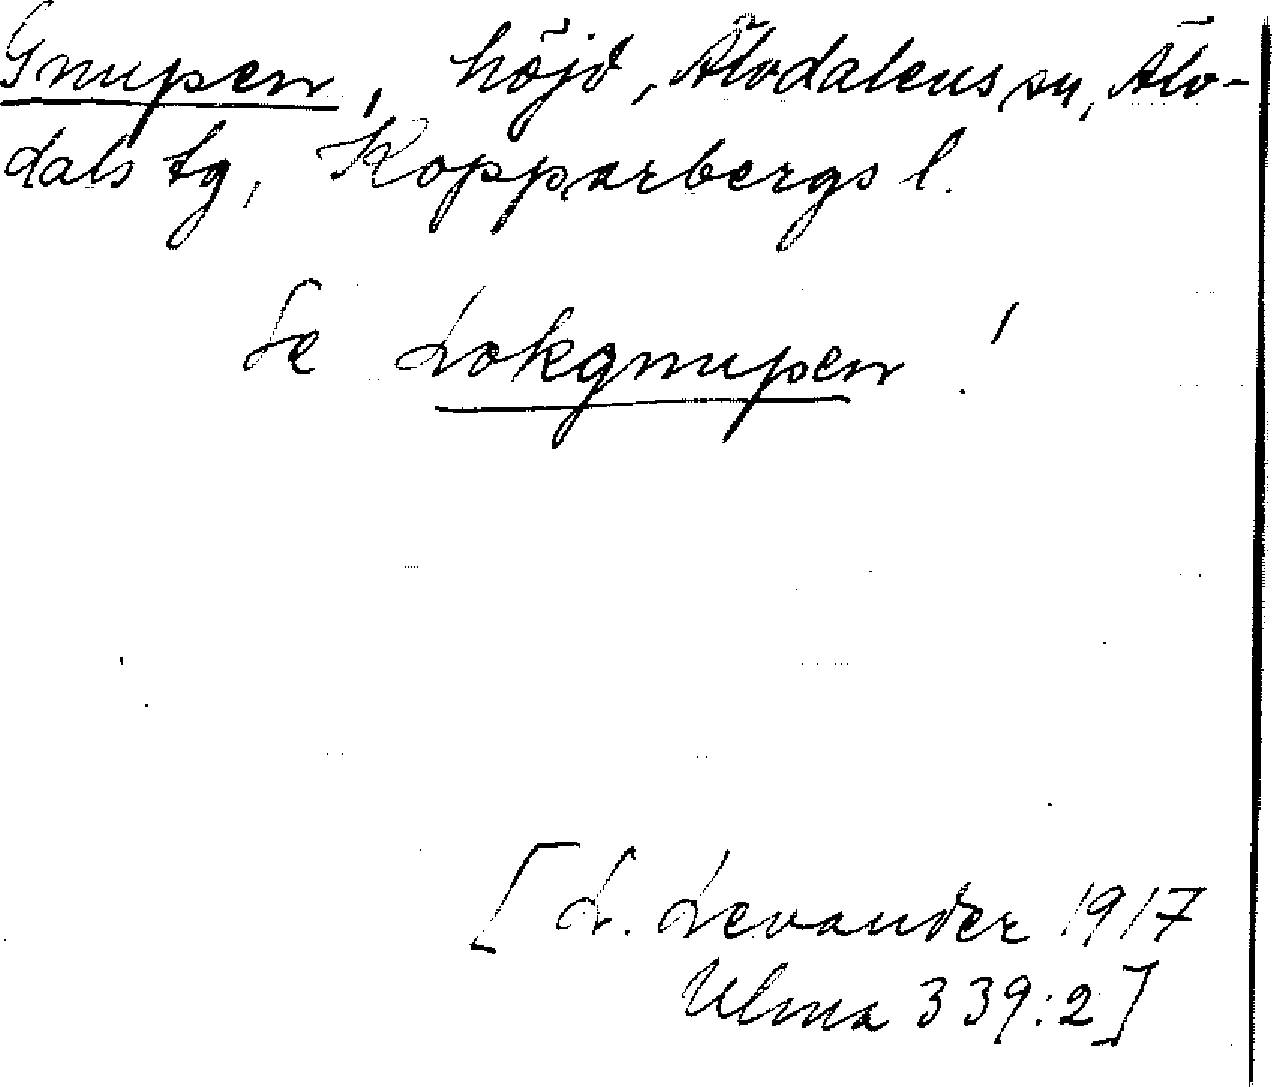 Gnupen, höjd, Älvdalens sn, Älv-
dals tg, Kopparbergs l.
Se Lokgnupen!
[L. Levander 1917
Ulma 339:2]